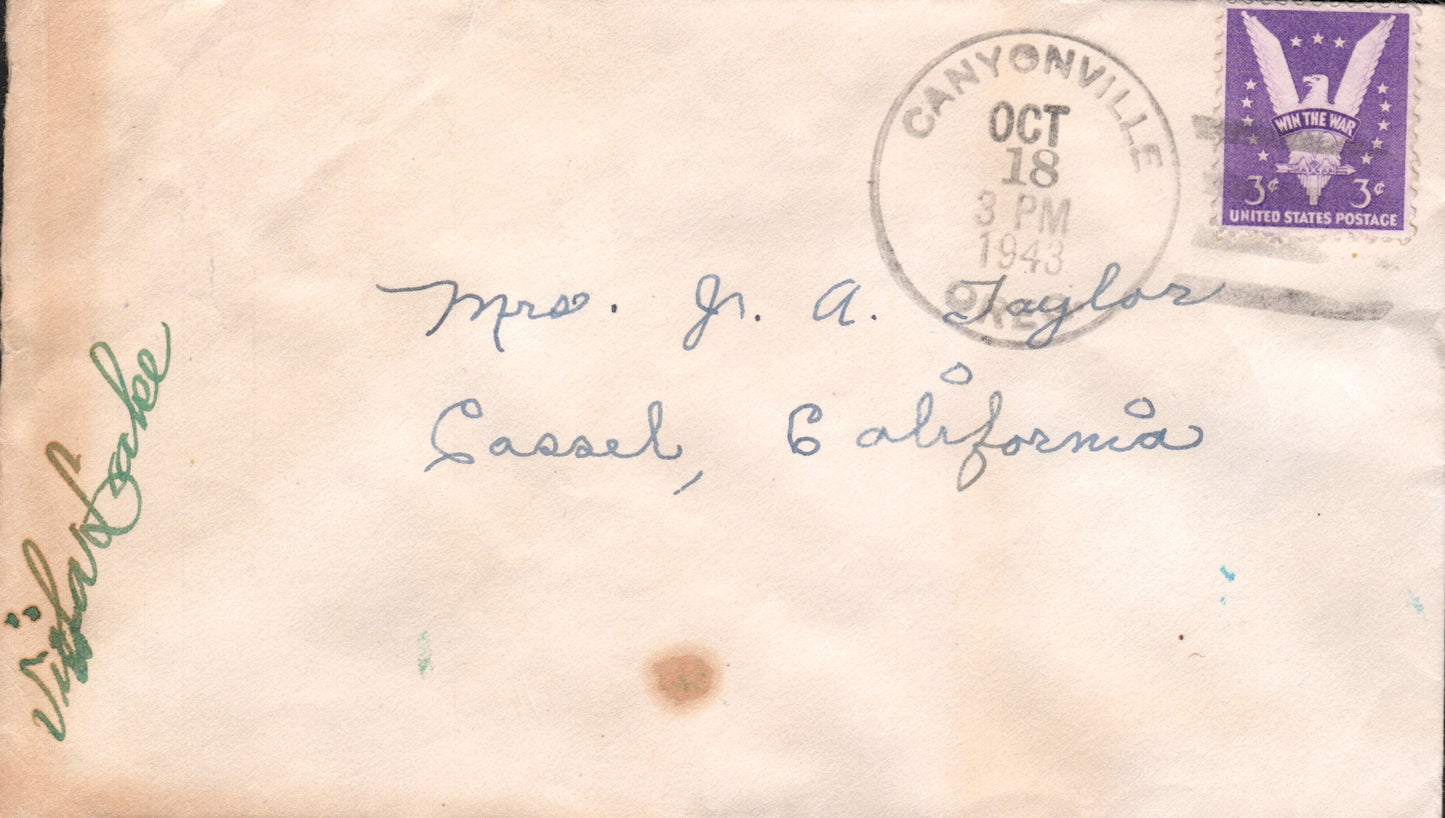 CANYONVILLE
OCT
18
3 PM
1943
OREG.
WIN THE WAR
3¢ 3¢
UNITED STATES POSTAGE
Mrs. Jr. A. Taylor
Cassel, California
Viola